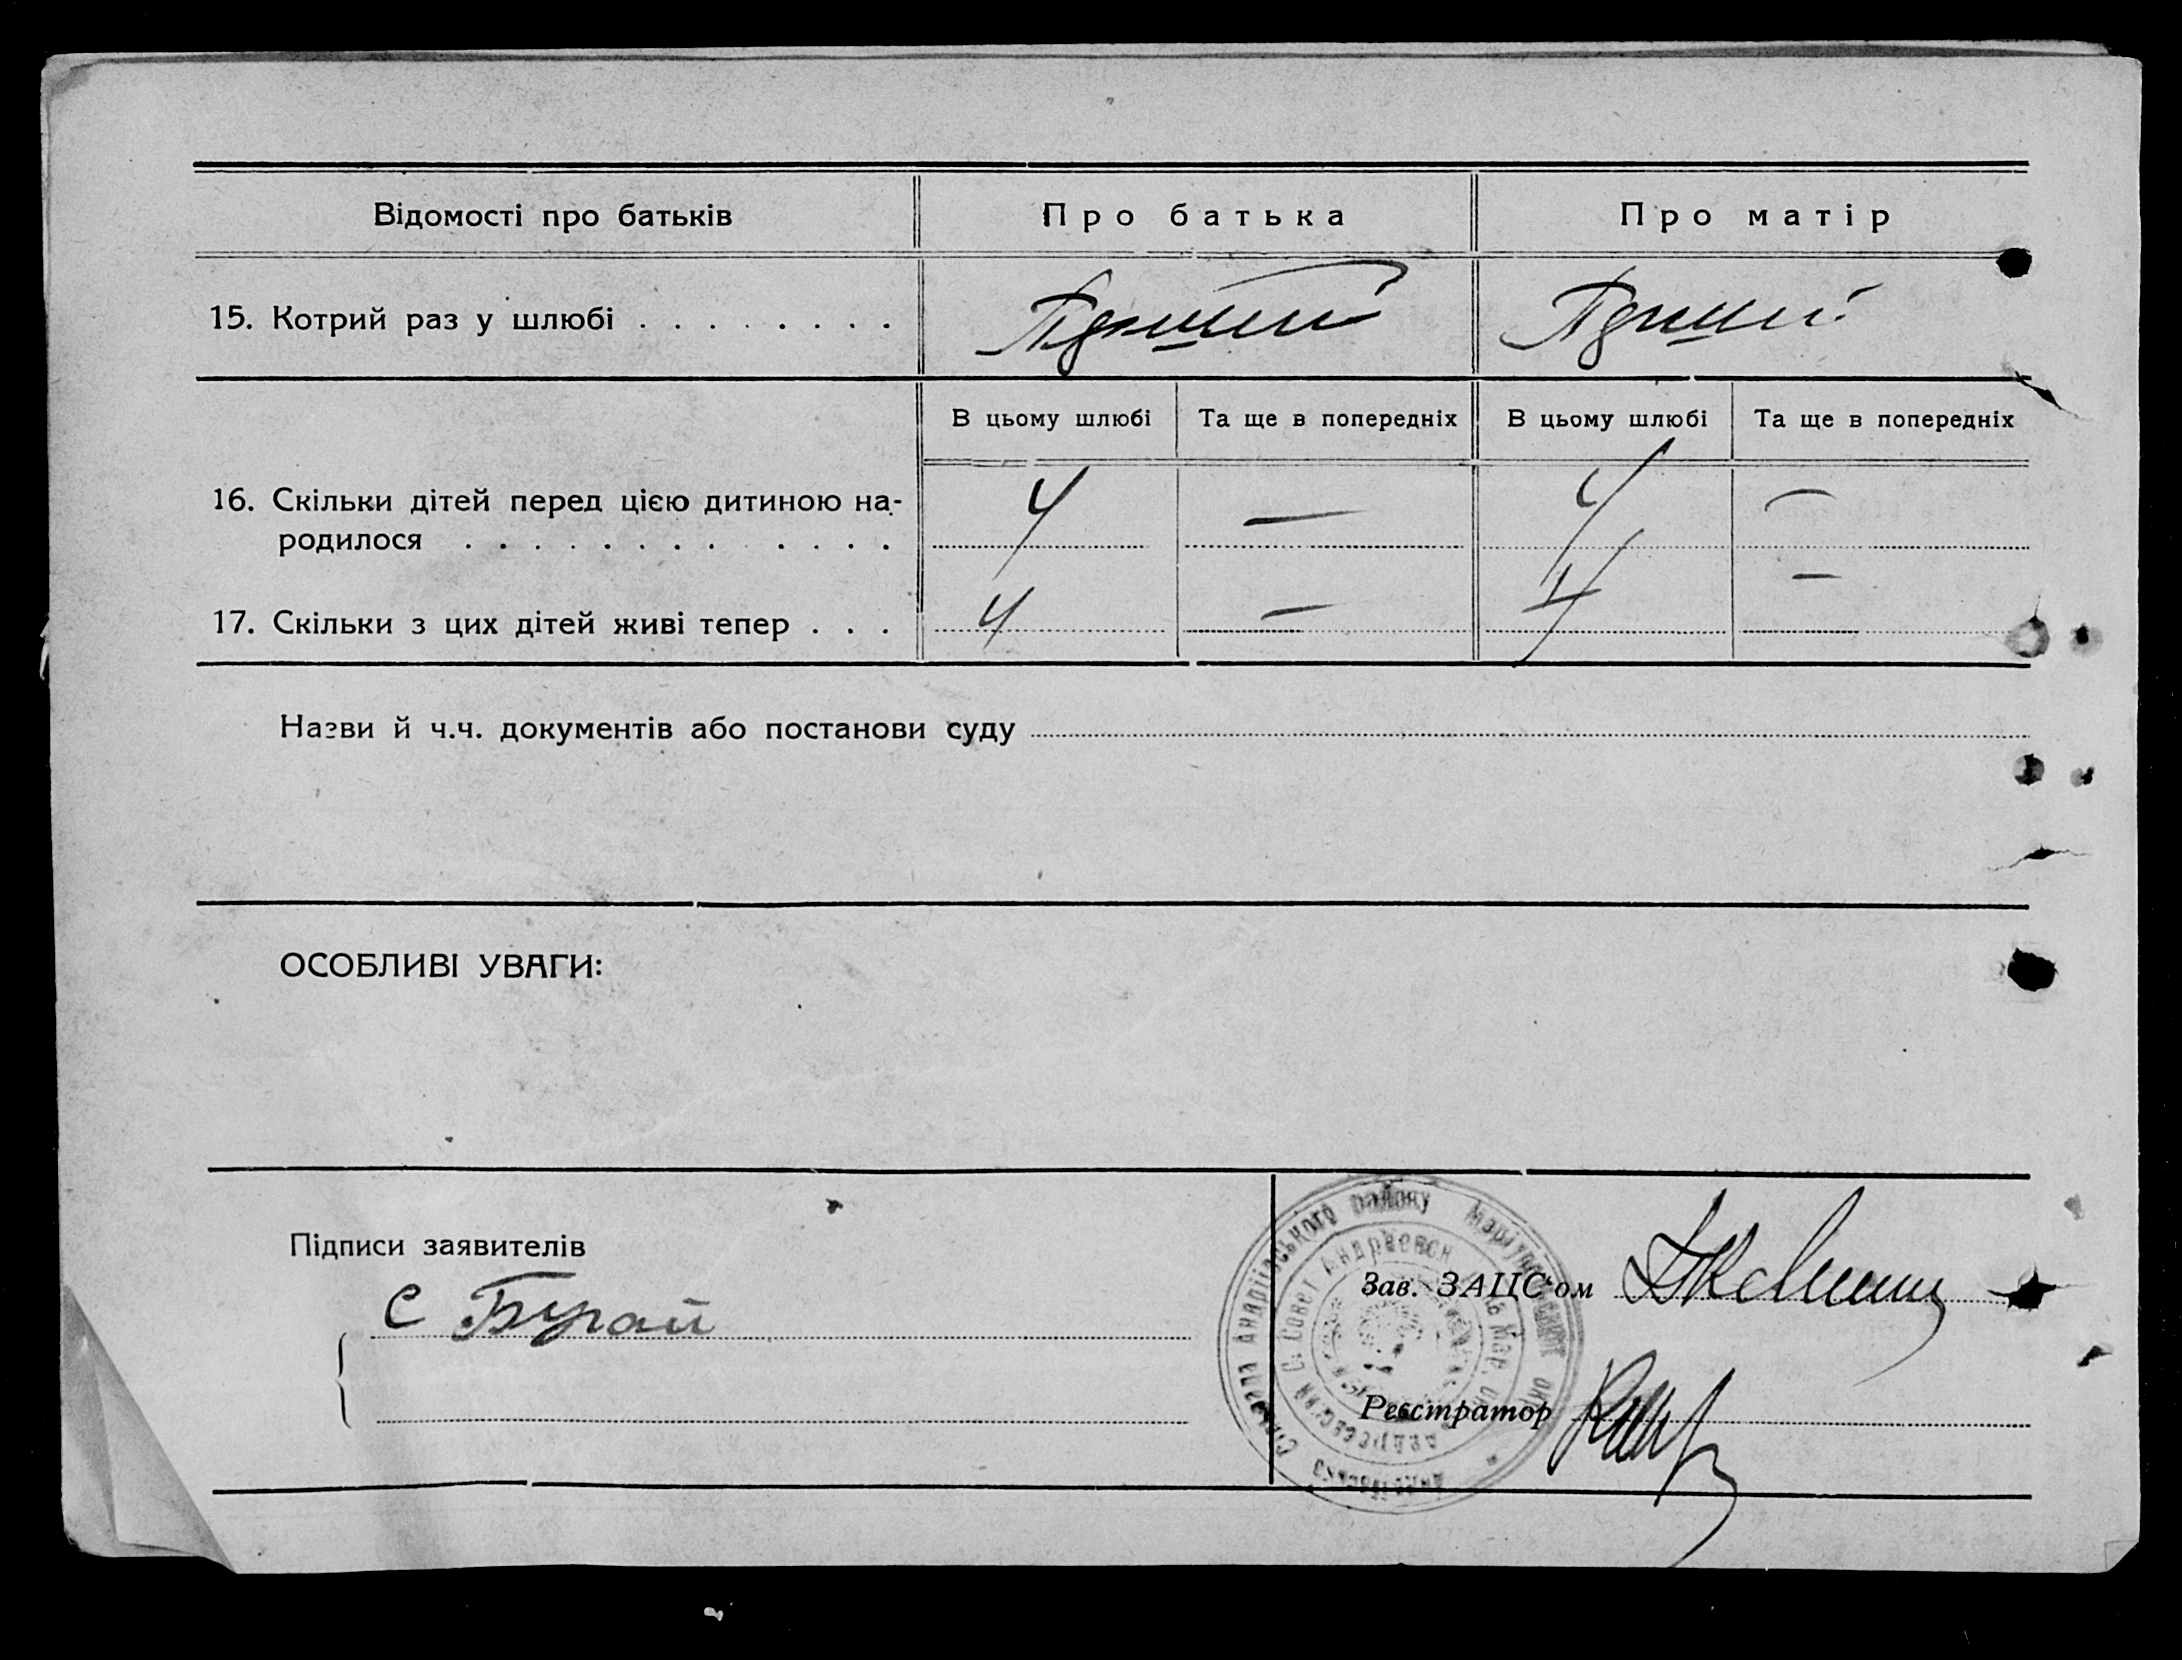 Відомості про батьків
Про батька
Про матір
15. Котрий раз у шлюбі . . . . . . . .
Перший
Перший
В цьому шлюбі
Та ще в попередніх
В цьому шлюбі
Та ще в попередніх
16. Скільки дітей перед цією дитиною на-
родилося . . . . . . . . . . . . .
4
—
4
—
17. Скільки з цих дітей живі тепер . . .
4
—
4
—
Назви й ч.ч. документів або постанови суду
ОСОБЛИВІ УВАГИ:
Підписи заявителів
С Бурай
Зав. ЗАЦС'ом
Реєстратор
району
Андреевск